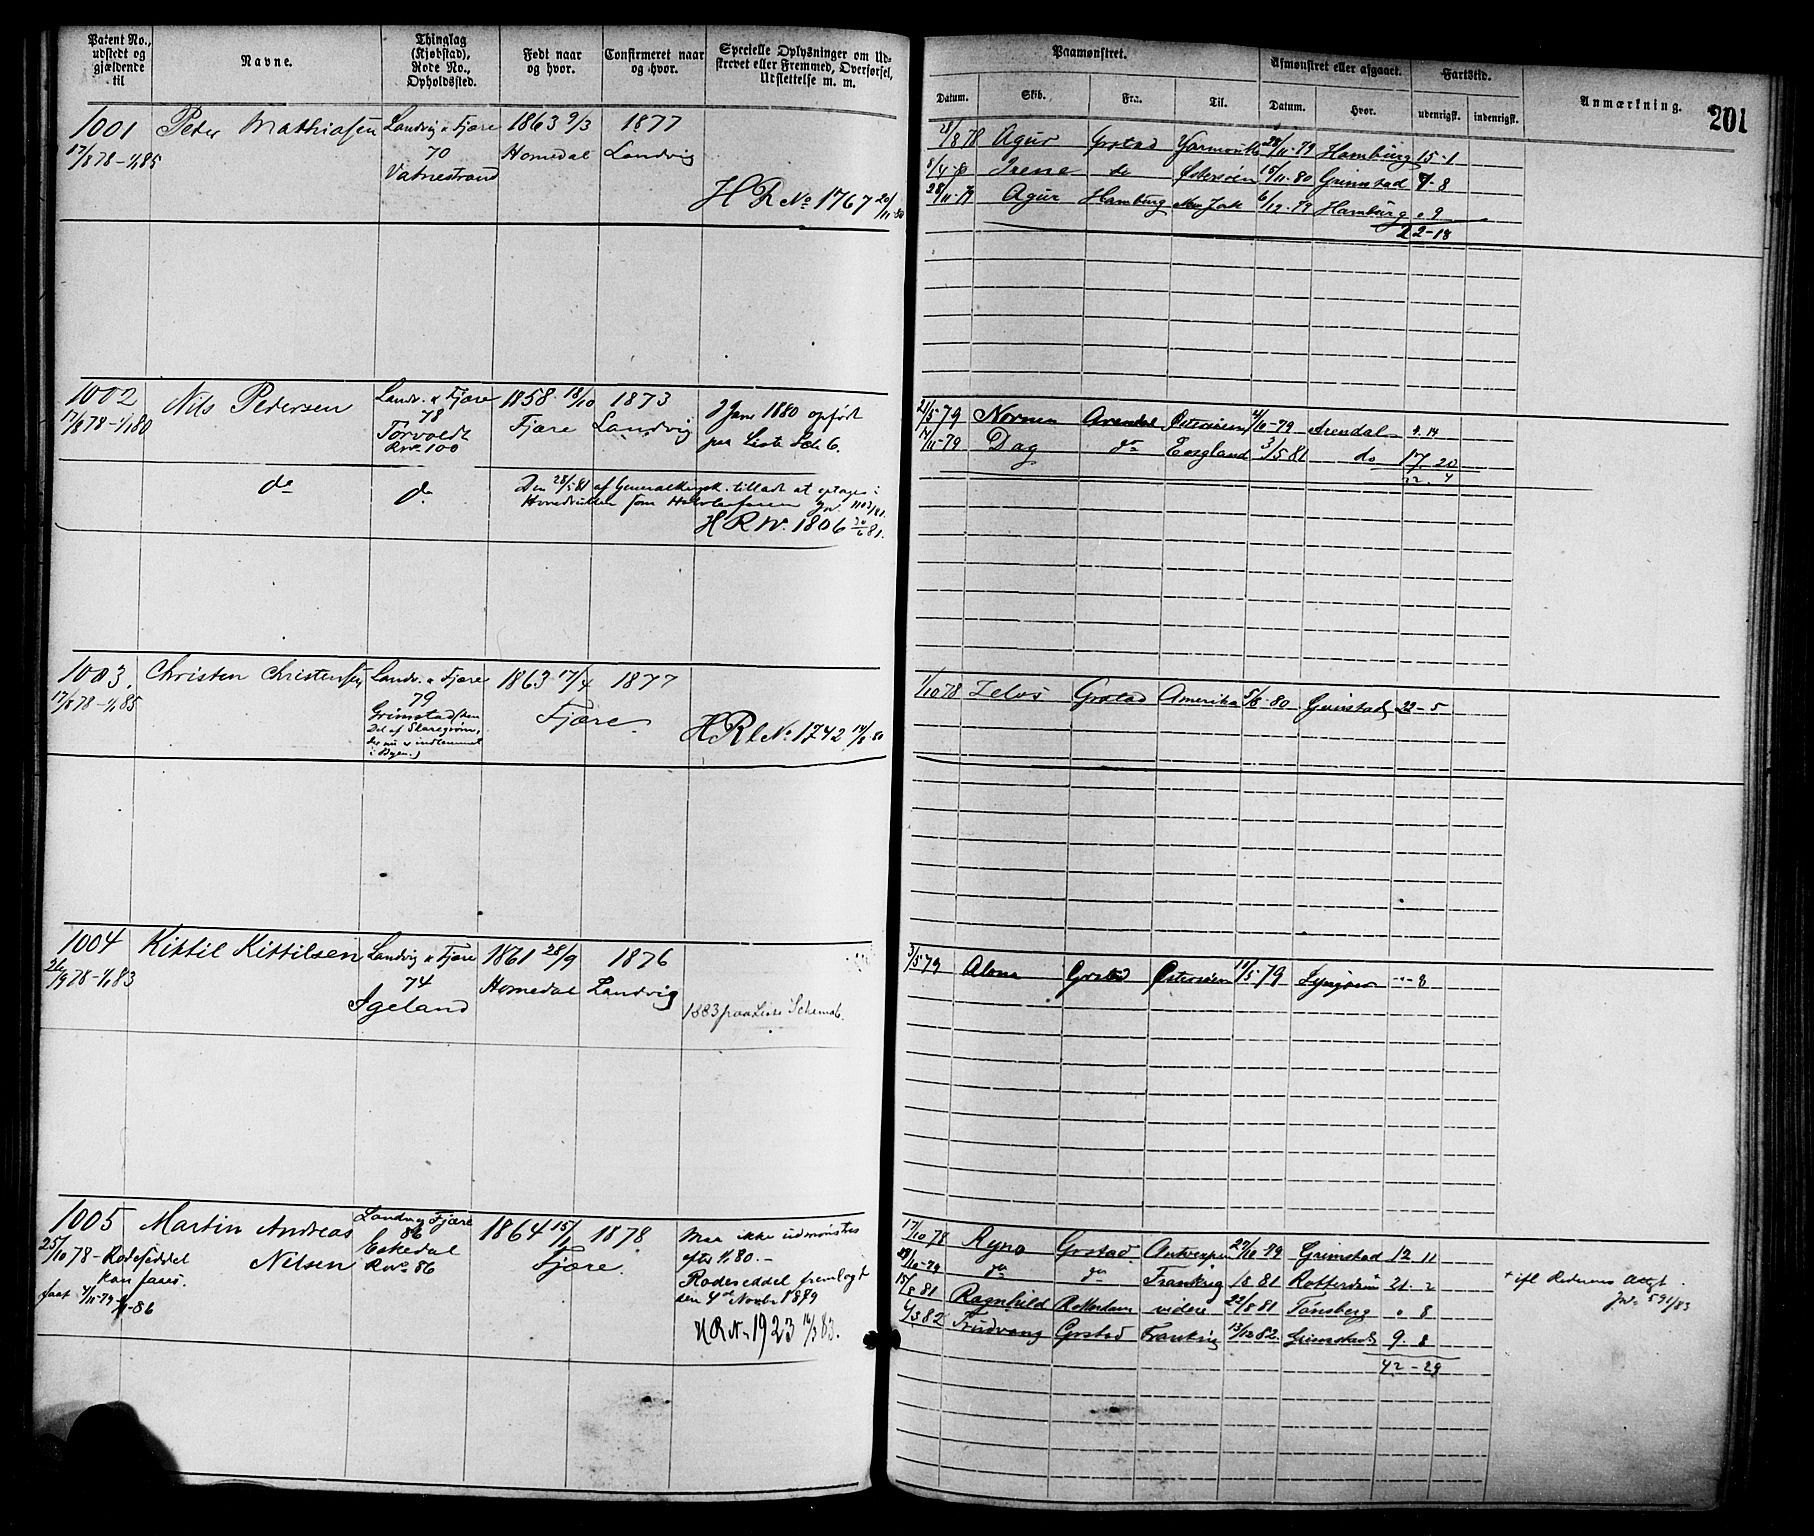 Patent No., udstedt og gjældende til
Navne.
Thinglag (Kjøbstad), Rode No., Opholdssted.
Født naar og hvor.
Confirmeret naar og hvor.
Specielle Oplysninger om Udskrevet eller Fremmed, Overførsel, Udslettelse m. m.
Paamønstret.
Afmønstret eller afgaaet.
Fartstid.
Anmærkning.
201
Datum.
Skib.
Fra.
Til.
Datum.
Hvor.
udenrigsk.
indenrigsk.
1001 Peter Mathiasen Landvig & Fjære 1863 9/3 1877
17/8 78 - 1/1 85 70 Homedal Landvig
Vatnestrand
H R No 1767 20/11 80
28/8 78 Agur Grstad Yarmouth 28/11-79 Hamburg 15-1
8/4-80 Irene do Østersøen 15/11-80 Grimstad 7-8
28/11-79 Agur Hamburg New York 6/12-79 Hamburg " 9
22-18
1002 Nils Pedersen Landv. & Fjære 1858 18/10 1873 I Janr 1880 opført
17/8 78 - 1/1 80 78 Fjære Landvig paa Liste Sch 6.
Torvoldt
Rno 100
do do Den 28/5 81 af Generalkrigsk. tilladt at optages i
Hovedrullen som
H R No. 1806 30/6 81.
21/5 79 Norman Arendal Østersøen 4/10-79 Arendal 4. 14
17/11-79 Dag do England 3/5 81 do 17. 20
22. 4
1003. Christen Christensen Landv. & Fjære 1863 17/4 1877
17/8 78 - 1/1 85 79 Fjære.
Grimstad (den
Del af
der nu er indlemmet
i Byen.)
H R No 1742 14/8 80
1/10 78 Zelos Grstad Amerika 5/6-80 Grimstad 22-5
1004 Kittil Kittilsen Landvig & Fjære 1861 28/9 1876
26/9 78 - 1/1 83 74 Homedal Landvig
Igeland
1883 paa Liste Schema 6.
3/5 79 Alma Grstad Østersøen 11/5-79 Lyngør --- 8
1005 Martin Andreas Landvig Fjære 1864 15/1 1878 Maa ikke udmønstres
25/10 78 - Rodeseddel Nilsen 86 Fjære. efter 1/1 80. -
kan faaes. Eskedal Rodeseddel fremlagt
faat 4/11-79-1/1-86 Rno 86 den 4de Novbr 1879
H R No 1923 16/3 83.
17/10 78 Ryno Grstad Antwerpen 22/10-79 Grimstad 12 11
28/10-79 do do Frankrig 1/8 81 Rotterdam 21. 2
15/8 81 Ragnhild Rotterdam videre 22/8 81 Tønsberg " 8
4/3 82 Trudvang Grstad Frankrig 13/12 82. Grimstad 9. 8
42-29
+ ifl Rederens Attest. Jno 591/83